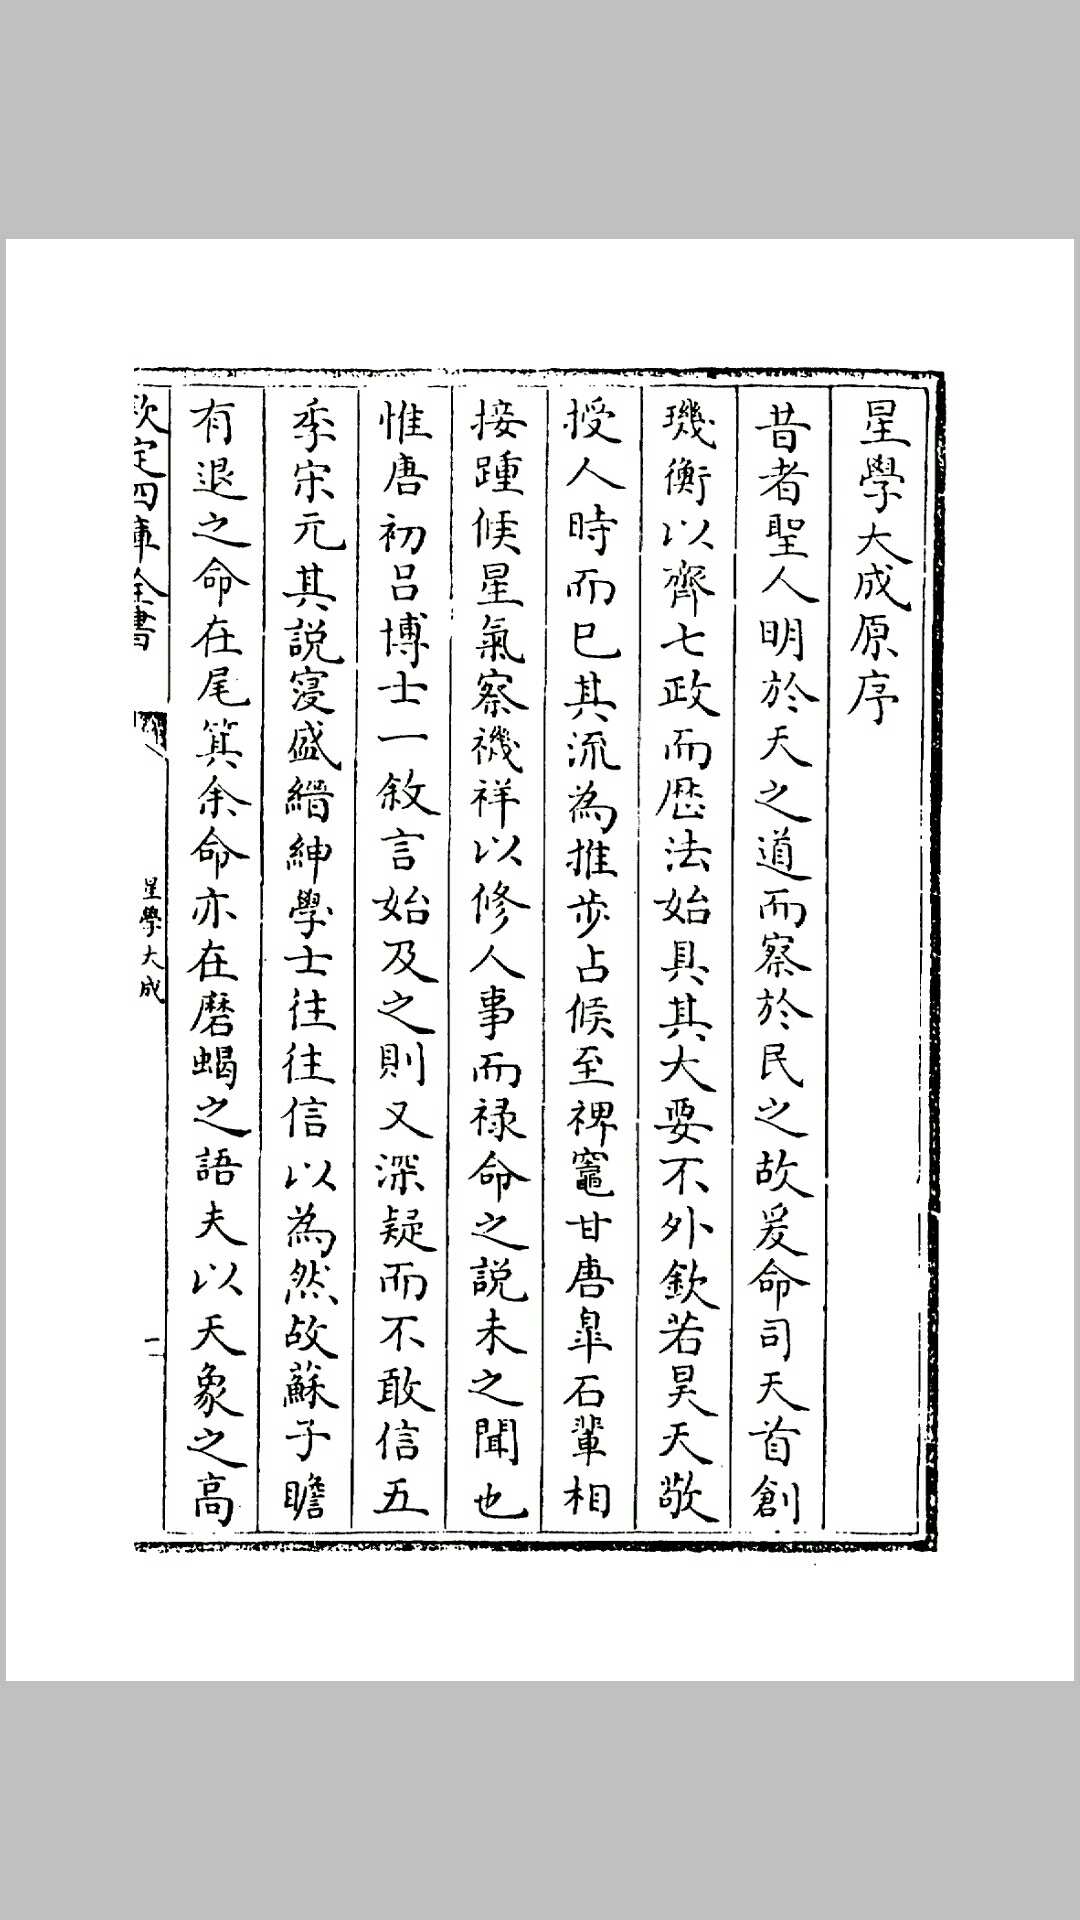 星學大成原序
昔者聖人明於天之道而察於民之故爰命司天首創
璣衡以齊七政而厯法始具其大要不外欽若昊天敬
授人時而已其流為推步占候至裨竈甘唐臯石輩相
接踵候星氣察禨祥以修人事而禄命之説未之聞也
惟唐初吕博士一敘言始及之則又深疑而不敢信五
季宋元其説寖盛縉紳學士往往信以為然故蘇子瞻
有退之命在尾箕余命亦在磨蝎之語夫以天象之高
欽定四庫全書
星學大成
一